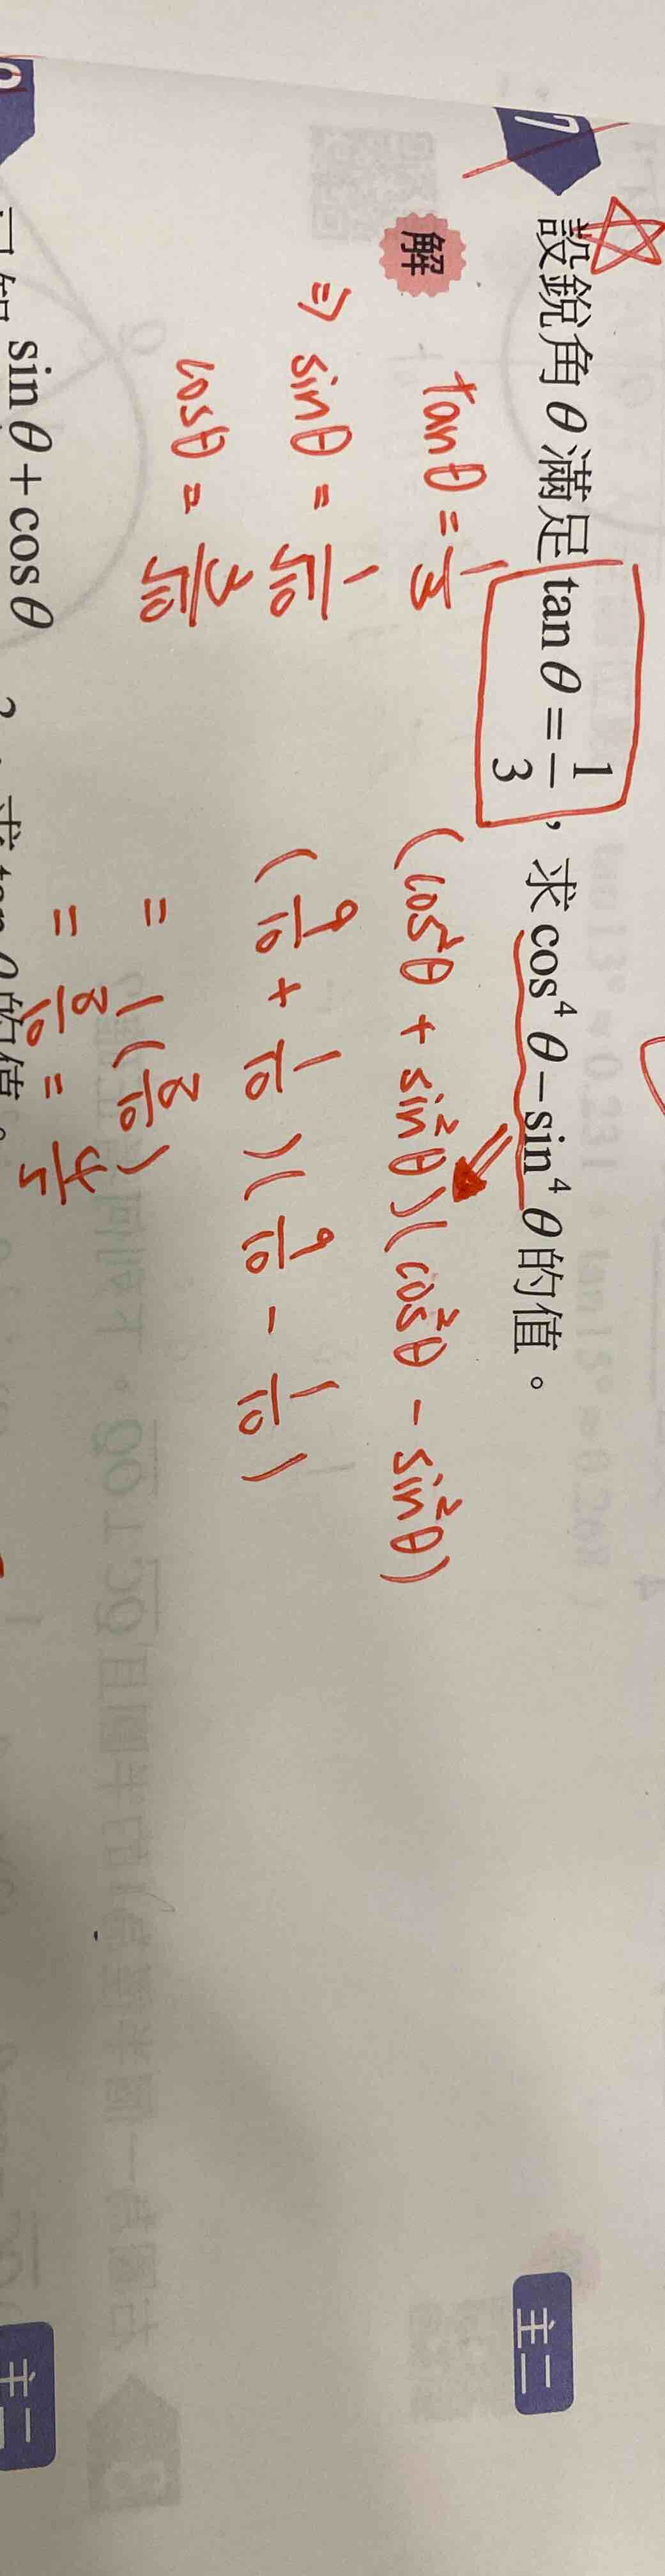 7 設銳角θ滿足tanθ=1/3，求cos⁴θ−sin⁴θ的值。
解
tanθ = 1/3
⇒ sinθ = 1/√10
cosθ = 3/√10
(cos²θ + sin²θ)(cos²θ − sin²θ)
(9/10 + 1/10)(9/10 − 1/10)
= 1(8/10)
= 8/10 = 4/5
主二
sinθ+cosθ
的值。
主二